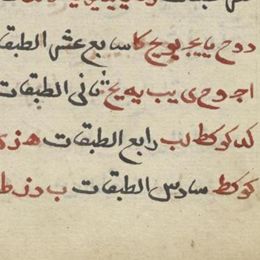 دوح يا يج يو يح كا سابع عشر الطبقات
ا ج و ح ى يب يه يح ثانى الطبقات
كد كو كط لب رابع الطبقات ه ز
كو كط سادس الطبقات ب د ز ط